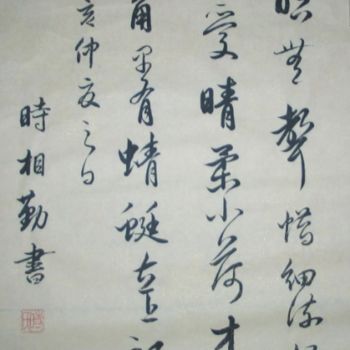 眼無聲惜細流
愛晴柔小荷才
角早有蜻蜓立上頭
亥仲夏之日
時相勤書